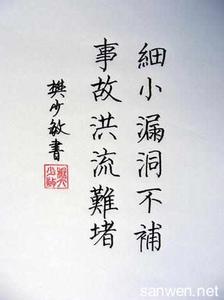 細小漏洞不補
事故洪流難堵
樊少敏書
sanwen.net